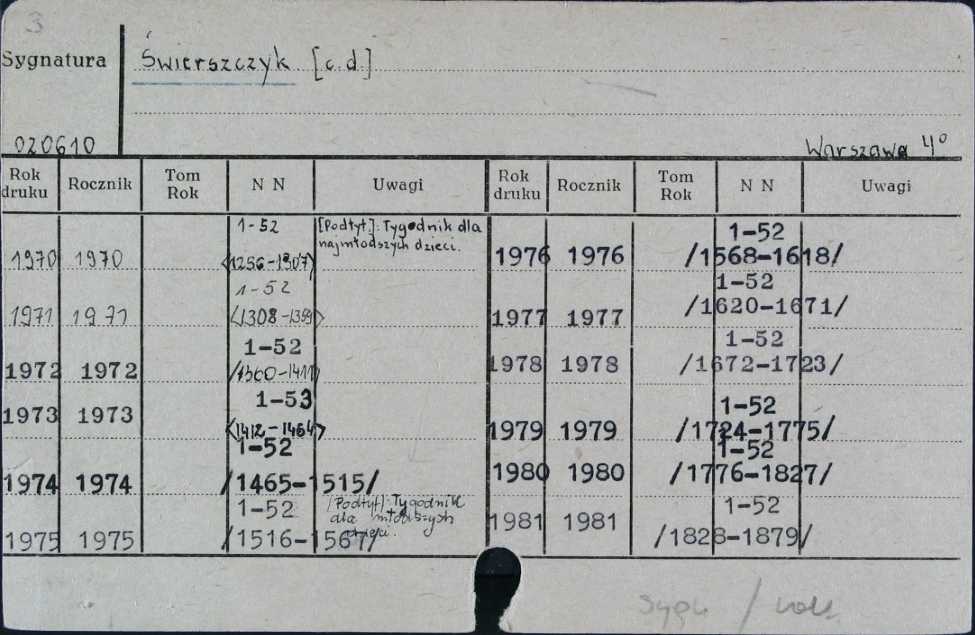 3
Sygnatura Świerszczyk [c.d.]
020610 Warszawa 4°
Rok druku Rocznik Tom Rok N N Uwagi Rok druku Rocznik Tom Rok N N Uwagi
1-52 [Podtyt]: Tygodnik dla
1970 1970 <1256-1307> najmłodszych dzieci.
1-52
1971 1971 <1308-1359>
1-52
1972 1972 /1360-1411/
1-53
1973 1973 <1412-1464>
1-52
1974 1974 /1465-1515/
1-52 /Podtyt/: Tygodnik
dla młodszych
1975 1975 /1516-1567/ dzieci.
1-52
1976 1976 /1568-1618/
1-52
1977 1977 /1620-1671/
1-52
1978 1978 /1672-1723/
1-52
1979 1979 /1724-1775/
1-52
1980 1980 /1776-1827/
1-52
1981 1981 /1828-1879/
sygn /